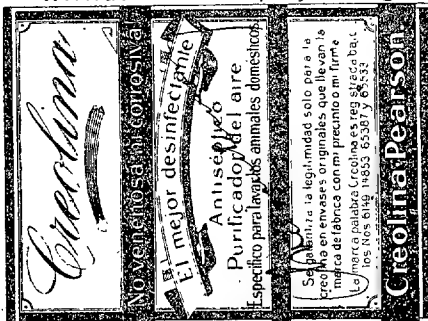 Creolina
No venenosa ni corrosiva
El mejor desinfectante
Antiséptico
Purificador del aire
Específico para lavar los animales domésticos.
Se garantiza la legitimidad solo para la
creolina en envases originales que llevan la
marca de fábrica con mi precinto o mi firma
La marca palabra Creolina es registrada bajo
los Nos 6149 14853 65387 y 65533
Creolina Pearson